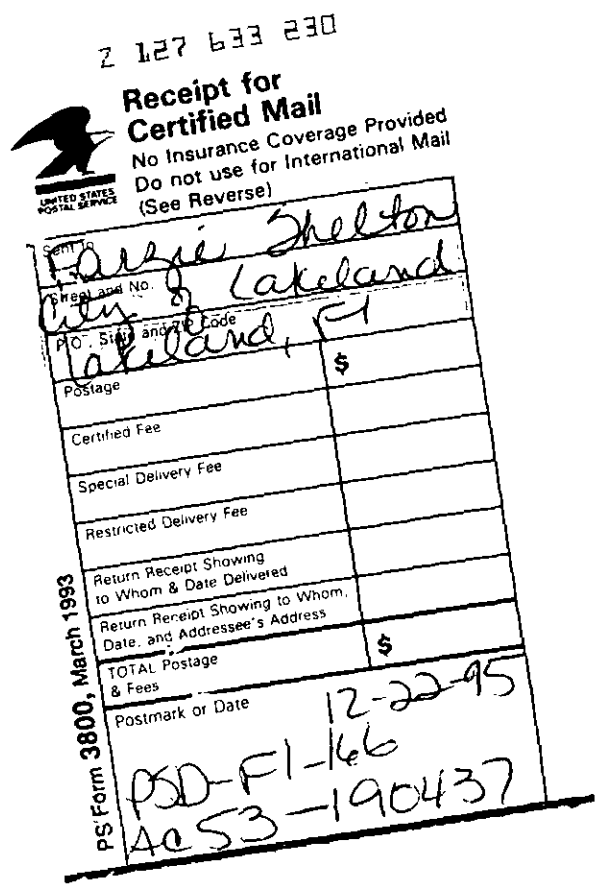 Z 127 633 230
Receipt for
Certified Mail
No Insurance Coverage Provided
Do not use for International Mail
(See Reverse)
UNITED STATES
POSTAL SERVICE
Sent to
Farzie Shelton
Street and No.
City of Lakeland
P.O., State and ZIP Code
Lakeland, Fl
Postage
$
Certified Fee
Special Delivery Fee
Restricted Delivery Fee
Return Receipt Showing
to Whom & Date Delivered
Return Receipt Showing to Whom,
Date, and Addressee's Address
TOTAL Postage
& Fees
$
Postmark or Date
12-22-95
PSD-Fl-166
AC53-190437
PS Form 3800, March 1993